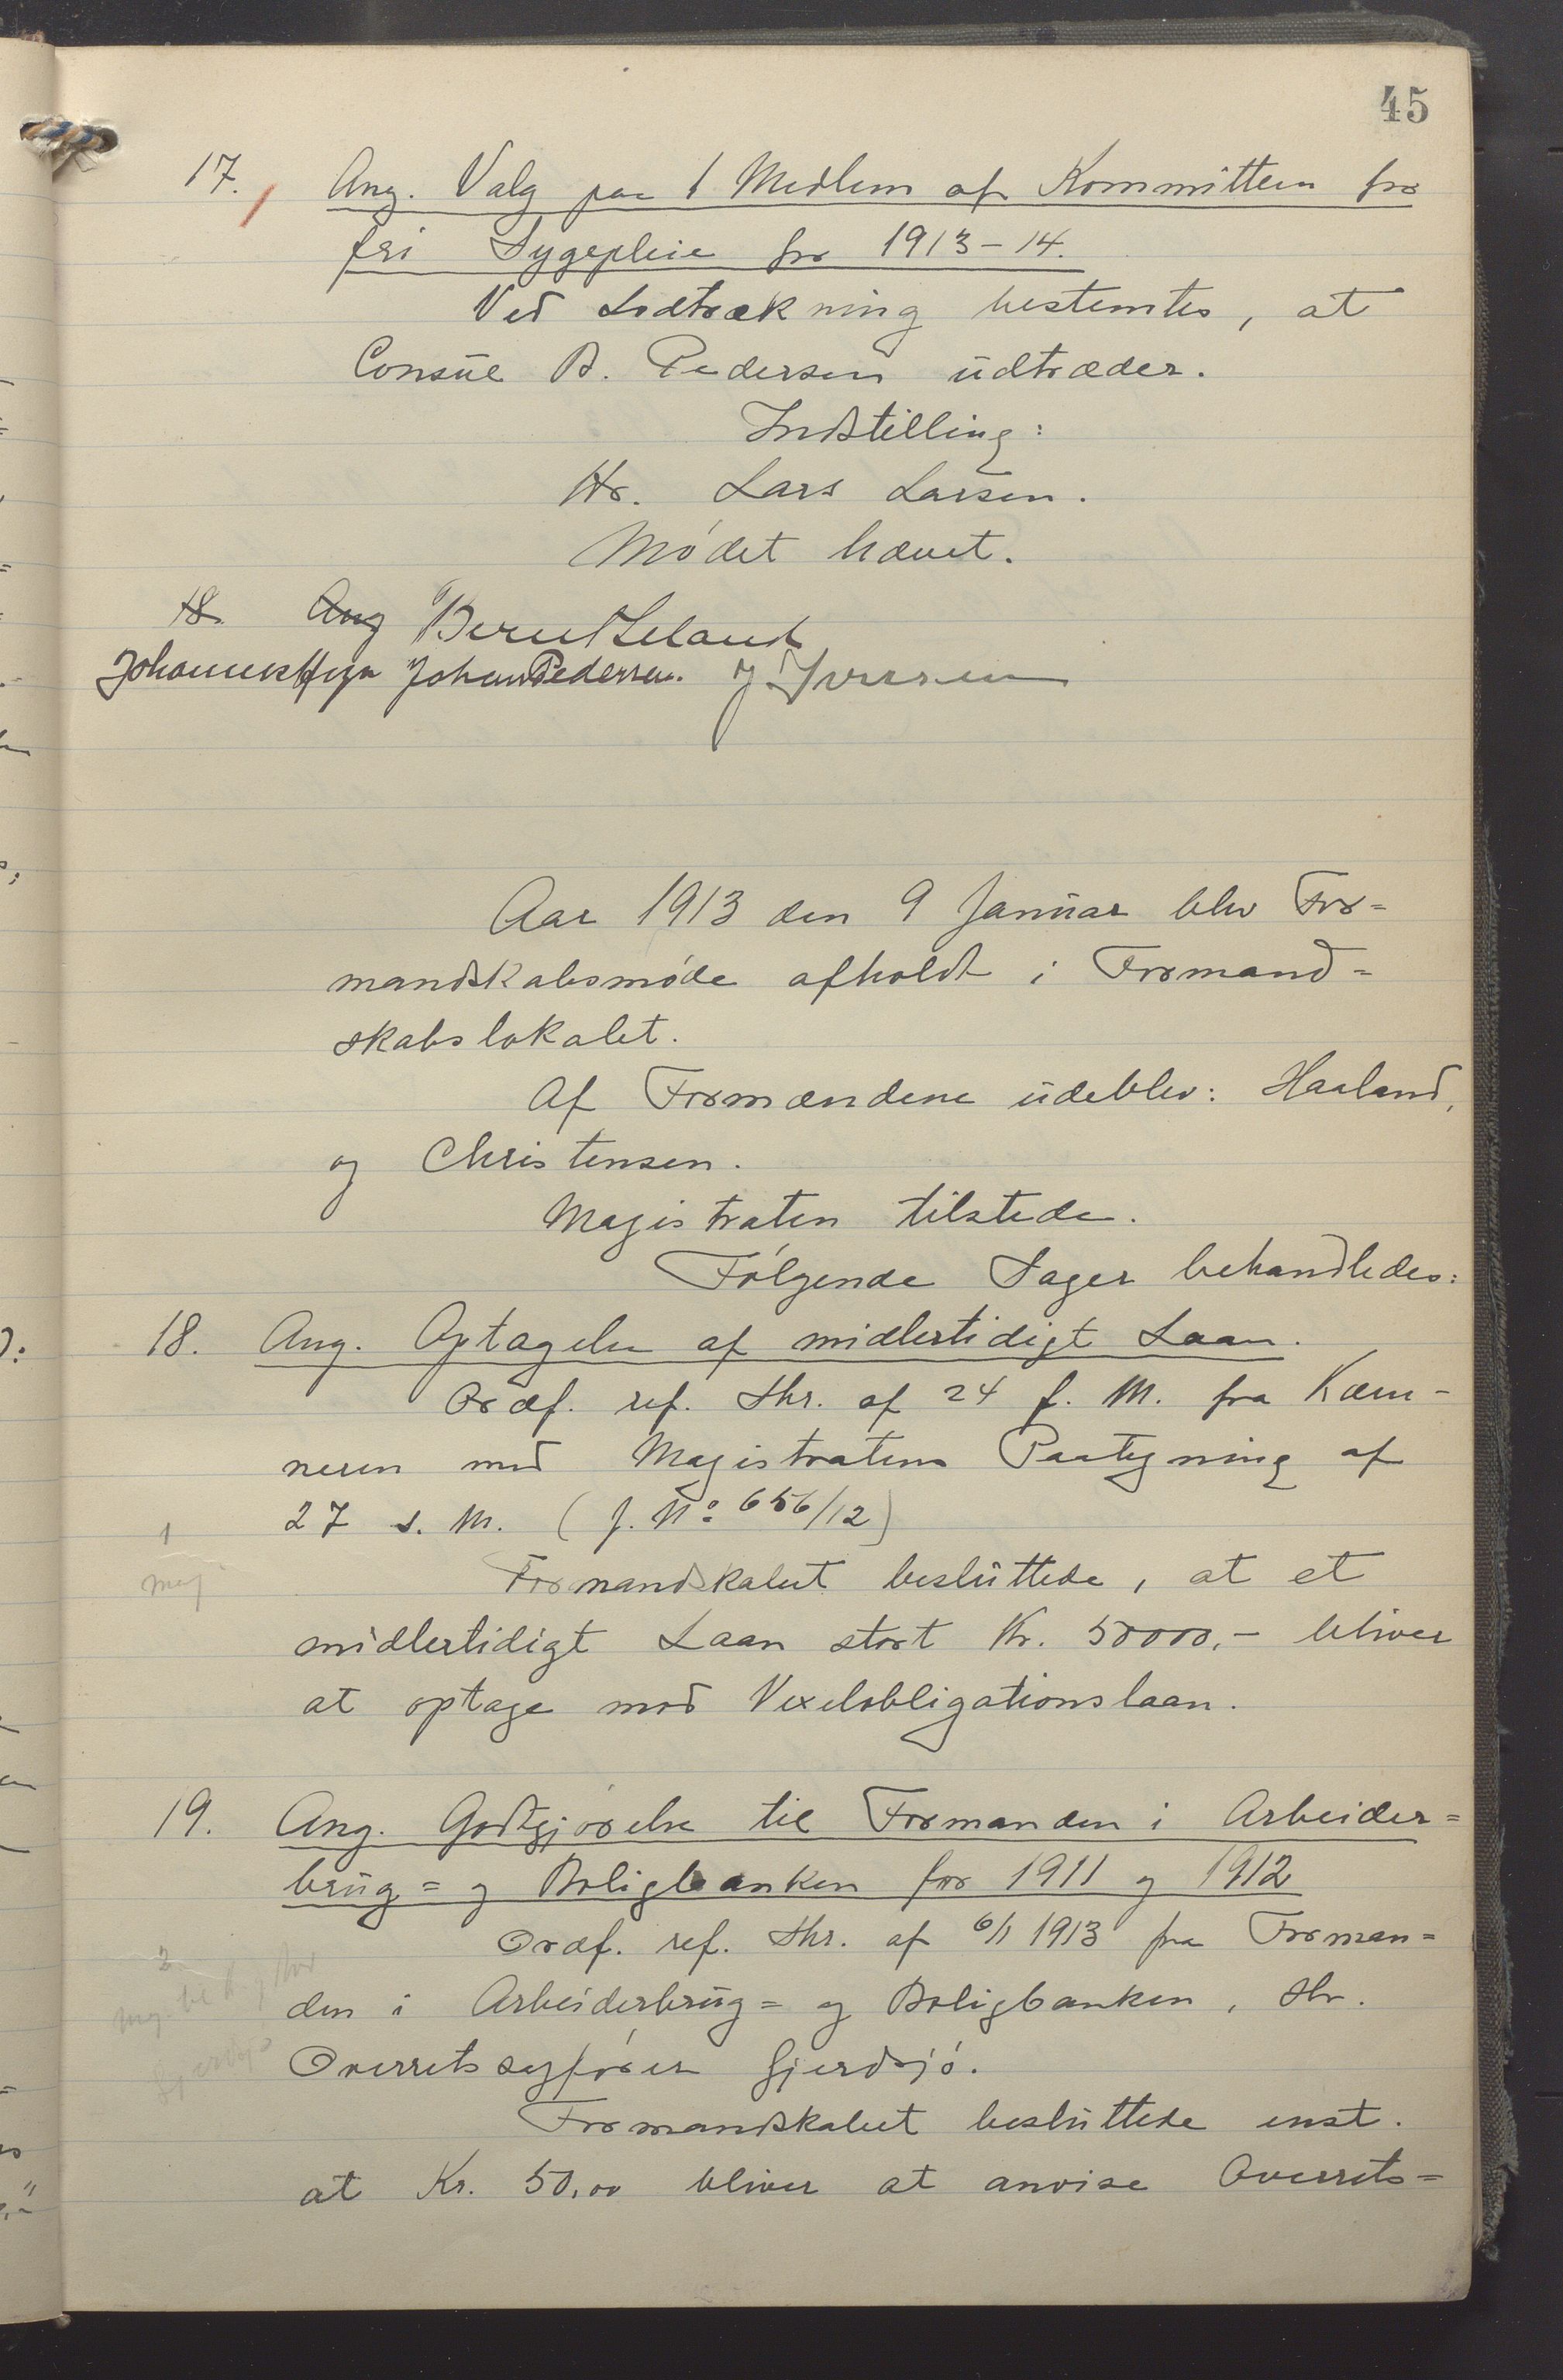 45
17. Ang. Valg paa 1 Medlem af Kommitteen for
fri Sygepleie for 1913-14.
Ved Lodtrækning bestemtes, at
Consul B. Pedersen udtræder.
Indstilling:
Hr. Lars Larsen.
Mødet hævet.
18. Ang Bernt Leland
Johannes Johan Pedersen. J Iversen
Aar 1913 den 9 Januar blev For=
mandskabsmøde afholdt i Formand=
skabslokalet.
Af Formændene udeblev: Haaland,
og Christensen.
Magistraten tilstede.
Følgende Sager behandledes:
18. Ang. Optagelse af midlertidigt Laan.
Ordf. ref. Skr. af 24 f. M. fra Kæm-
neren med Magistratens Paategning af
27 s. M. (J. No 656/12)
1
Formandskabet besluttede, at et
mag
midlertidigt Laan stort Kr. 50000,- bliver
at optage mod Vexelobligationslaan.
19. Ang. Godtgjørelse til Formanden i Arbeider=
brug= og Boligbanken for 1911 og 1912
Ordf. ref. Skr. af 6/1 1913 fra Forman=
2
den i Arbeiderbrug= og Boligbanken, Hr.
Overretssagfører Gjerdsjø.
Formandskabet besluttede enst.
at Kr. 50,00 bliver at anvise Overrets=